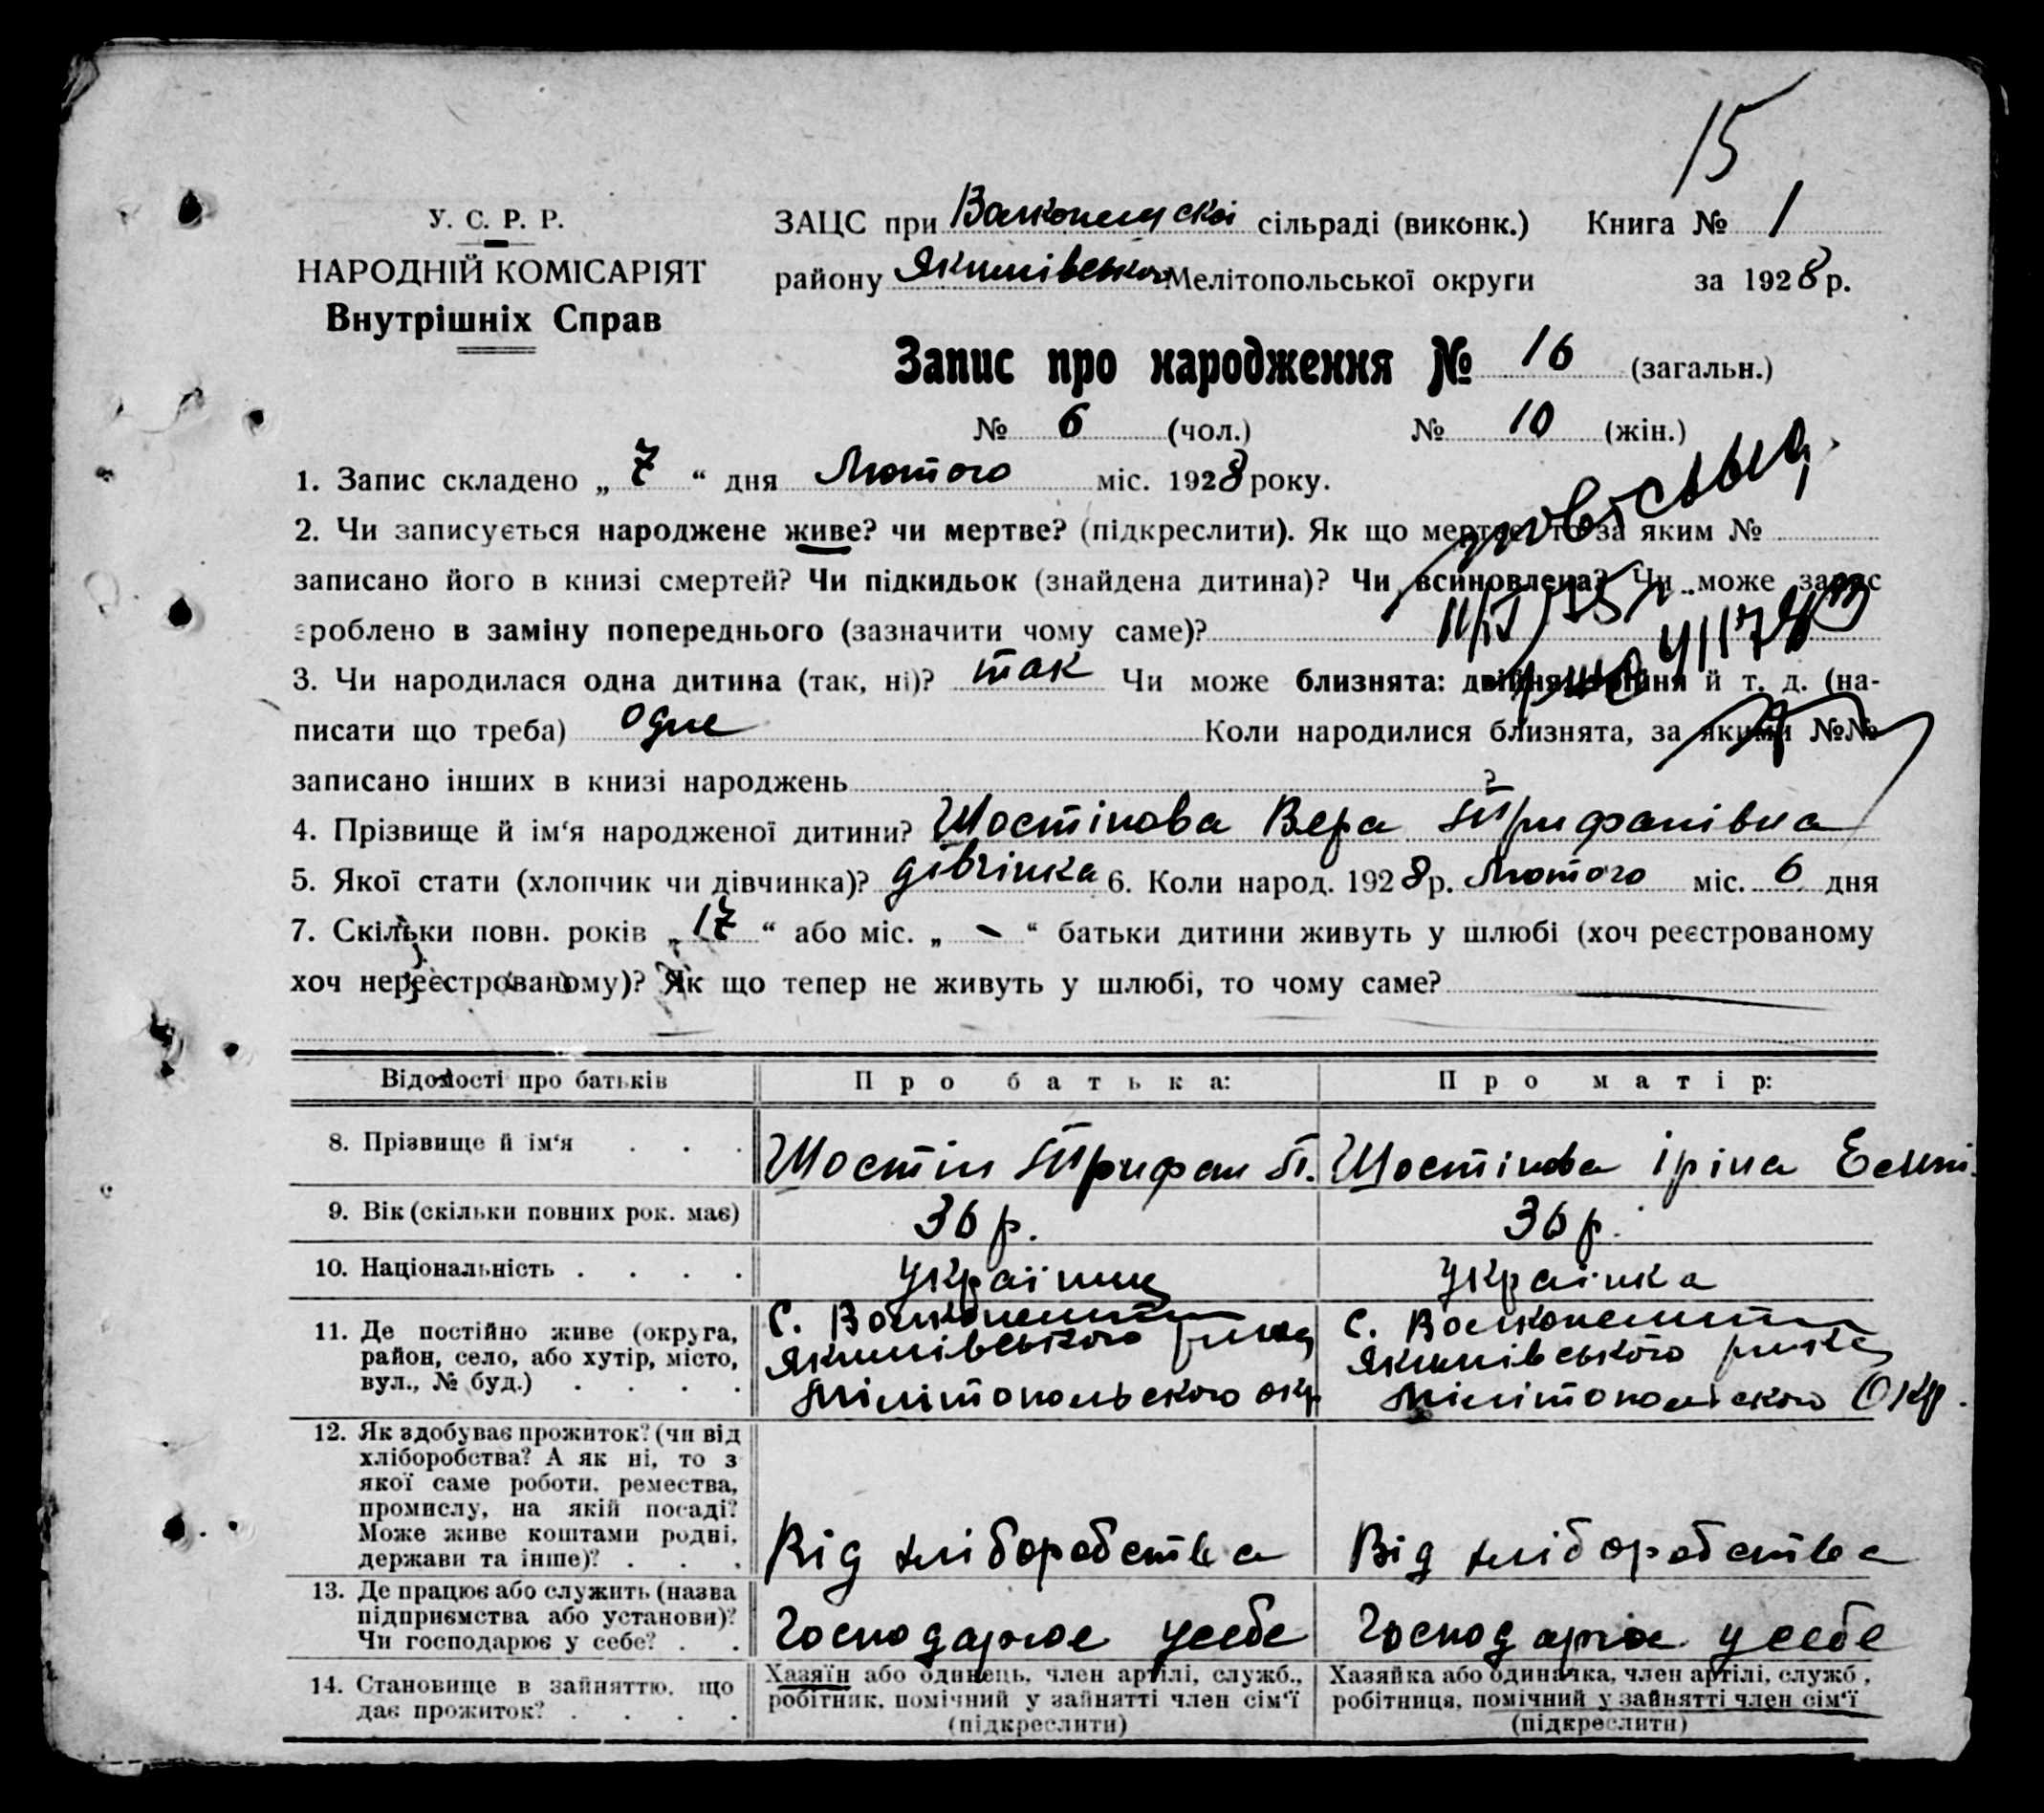 15
У. С. Р. Р.
НАРОДНІЙ КОМІСАРІЯТ
Внутрішніх Справ
ЗАЦС при сільраді (виконк.) Книга № 1
району Якимівського Мелітопольської округи за 1928 р.
Запис про народження № 16 (загальн.)
№ 6 (чол.) № 10 (жін.)
1. Запис складено „ 7 “ дня Лютого міс. 1928 року.
2. Чи записується народжене живе? чи мертве? (підкреслити). Як що мертве, то за яким №
записано його в книзі смертей? Чи підкидьок (знайдена дитина)? Чи всиновлена? Чи може запис
зроблено в заміну попереднього (зазначити чому саме)?
3. Чи народилася одна дитина (так, ні)? так Чи може близнята: двійня, трійня й т. д. (на-
писати що треба) одне Коли народилися близнята, за якими №№
записано інших в книзі народжень ?
4. Прізвище й ім‘я народженої дитини? Шостінова Вера Трифанівна
5. Якої стати (хлопчик чи дівчинка)? дівчінка 6. Коли народ. 1928 р. Лютого міс. 6 дня
7. Скільки повн. років „ 17 “ або міс. „ - “ батьки дитини живуть у шлюбі (хоч реєстрованому
хоч нереєстрованому)? Як що тепер не живуть у шлюбі, то чому саме?
Відомості про батьків Про батька: Про матір:
8. Прізвище й ім‘я . . . Шостін Трифан П. Шостінова Іріна
9. Вік (скільки повних рок. має) 36 р. 36 р.
10. Національність . . . . українец українка
11. Де постійно живе (округа,
район, село, або хутір, місто,
вул., № буд.) . . . .
С.
Якимівського
Мілітопольского окр.
С.
Якимівського
Мілітопольского Окр.
12. Як здобуває прожиток? (чи від
хліборобства? А як ні, то з
якої саме роботи, ремества,
промислу, на якій посаді?
Може живе коштами родні,
держави та інше)? . . .
Від хліборобства Від хліборобства
13. Де працює або служить (назва
підприємства або установи)?
Чи господарює у себе? . .
Господарює усебе Господарює усебе
14. Становище в зайняттю, що
дає прожиток? . . . .
Хазяїн або одинець, член артілі, служб.,
робітник, помічний у зайнятті член сім‘ї
(підкреслити)
Хазяйка або одиначка, член артілі, служб,
робітниця, помічний у зайнятті член сім‘ї
(підкреслити)